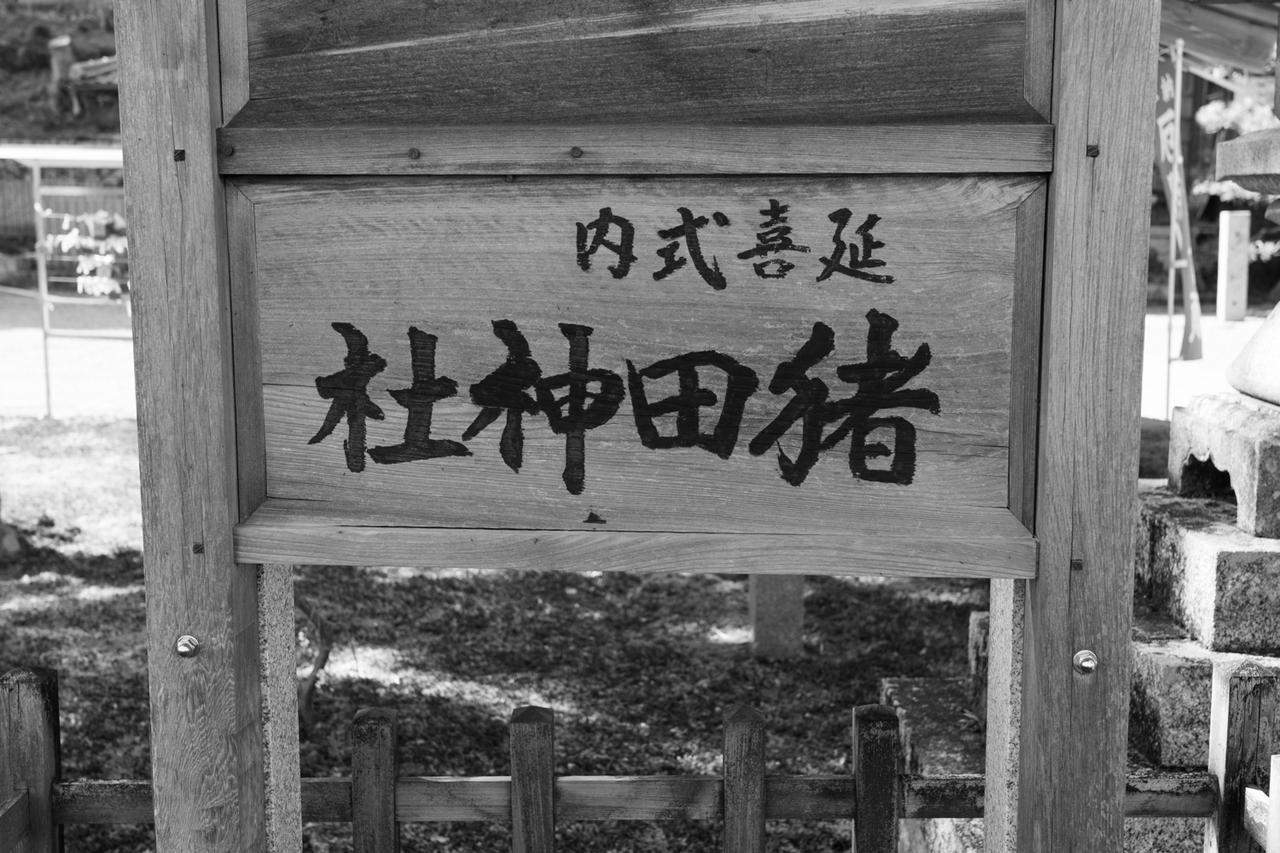 延喜式内
猪田神社